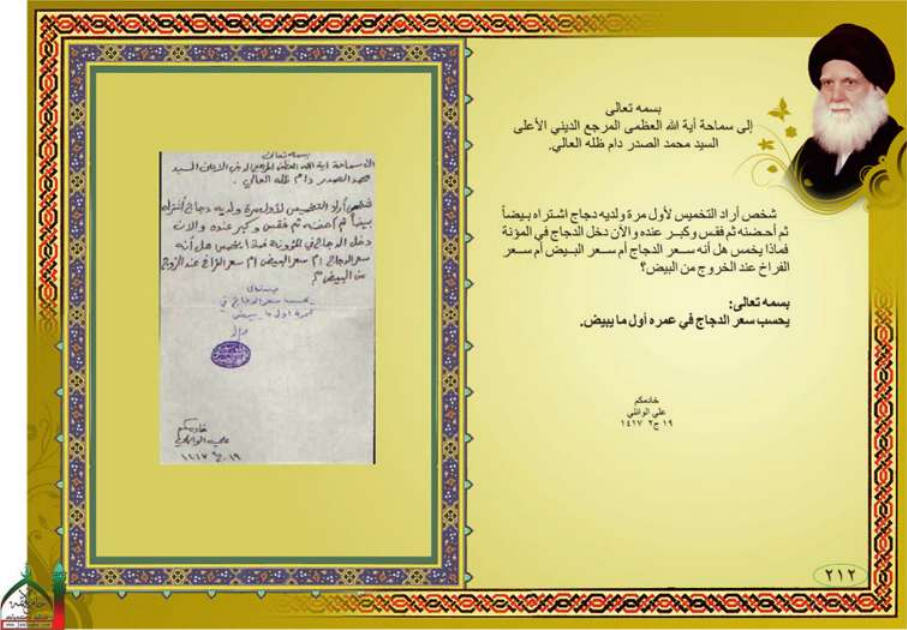 بسمه تعالى
إلى سماحة أية الله العظمى المرجع الديني الأعلى
السيد محمد الصدر دام ظله العالي.
شخص أراد التخميس لأول مرة ولديه دجاج اشتراه بيضاً
ثم أحضنه ثم فقس وكبر عنده والآن دخل الدجاج في المؤنة
فماذا يخمس هل أنه سعر الدجاج أم سعر البيض أم سعر
الفراخ عند الخروج من البيض؟
بسمه تعالى:
يحسب سعر الدجاج في عمره أول ما يبيض.
خادمكم
علي الوائلي
١٩ ج٢ ١٤١٧
٢١٢
بسمه تعالى
الى سماحة اية الله العظمى المرجع الديني الاعلى السيد
محمد الصدر دام ظله العالي.
شخص أراد التخميس لأول مرة ولديه دجاج اشتراه
بيضاً ثم أحضنه ثم فقس وكبر عنده والان
دخل الدجاج في المؤونة فماذا يخمس هل أنه
سعر الدجاج ام سعر البيض ام سعر الفراخ عند الخروج
من البيض؟
بسمه تعالى
يحسب سعر الدجاج في
عمره اول ما يبيض
خادمكم
علي الوائلي